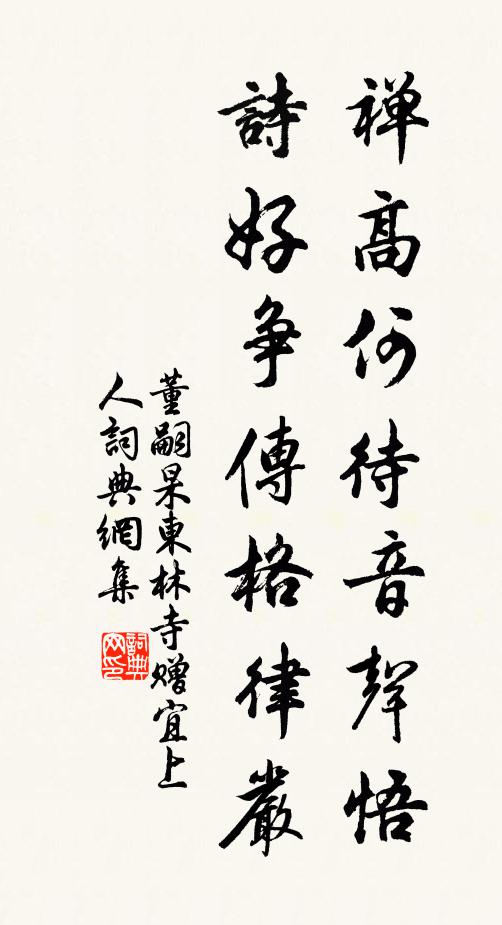 禅高何待音聲悟
詩好争傳格律嚴
董嗣杲東林寺赠宜上
人詞典網集
詞典网印